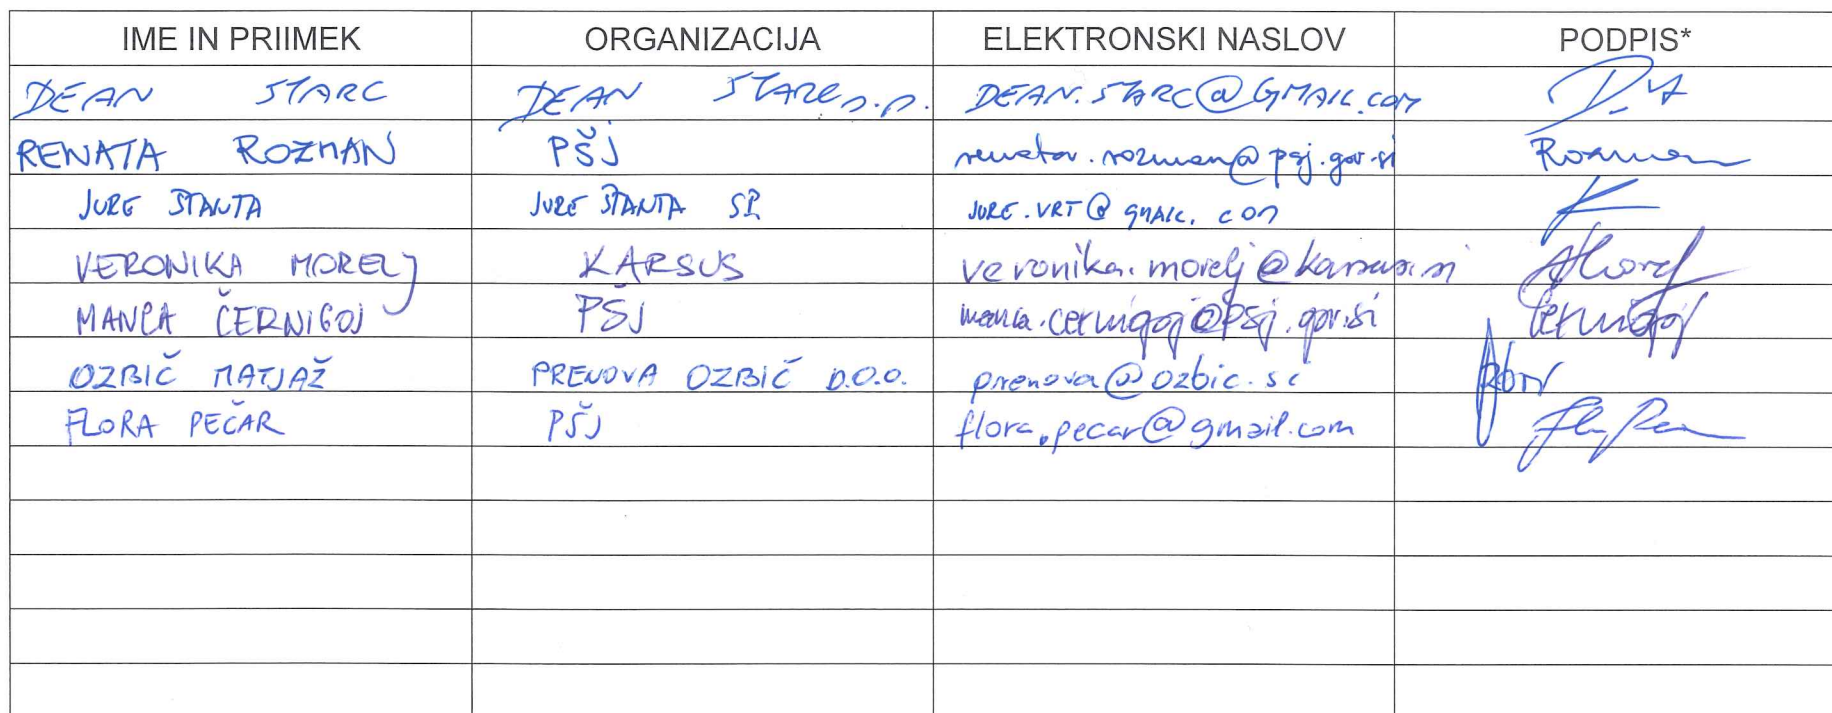 IME IN PRIIMEK ORGANIZACIJA ELEKTRONSKI NASLOV PODPIS*
DEAN STARC DEAN STARC s.p. DEAN.STARC@GMAIL.COM
RENATA ROZMAN PŠJ renata.rozman@psj.gov.si Rozman
JURE ŠTANTA JURE ŠTANTA SP. JURE.VRT@gmail.com
VERONIKA MORELJ KARSUS veronika.morelj@karsus.si
MANCA ČERNIGOJ PŠJ manca.cernigoj@psj.gov.si Černigoj
OZBIČ MATJAŽ PRENOVA OZBIČ D.O.O. prenova@ozbic.si
FLORA PEČAR PŠJ flora.pecar@gmail.com